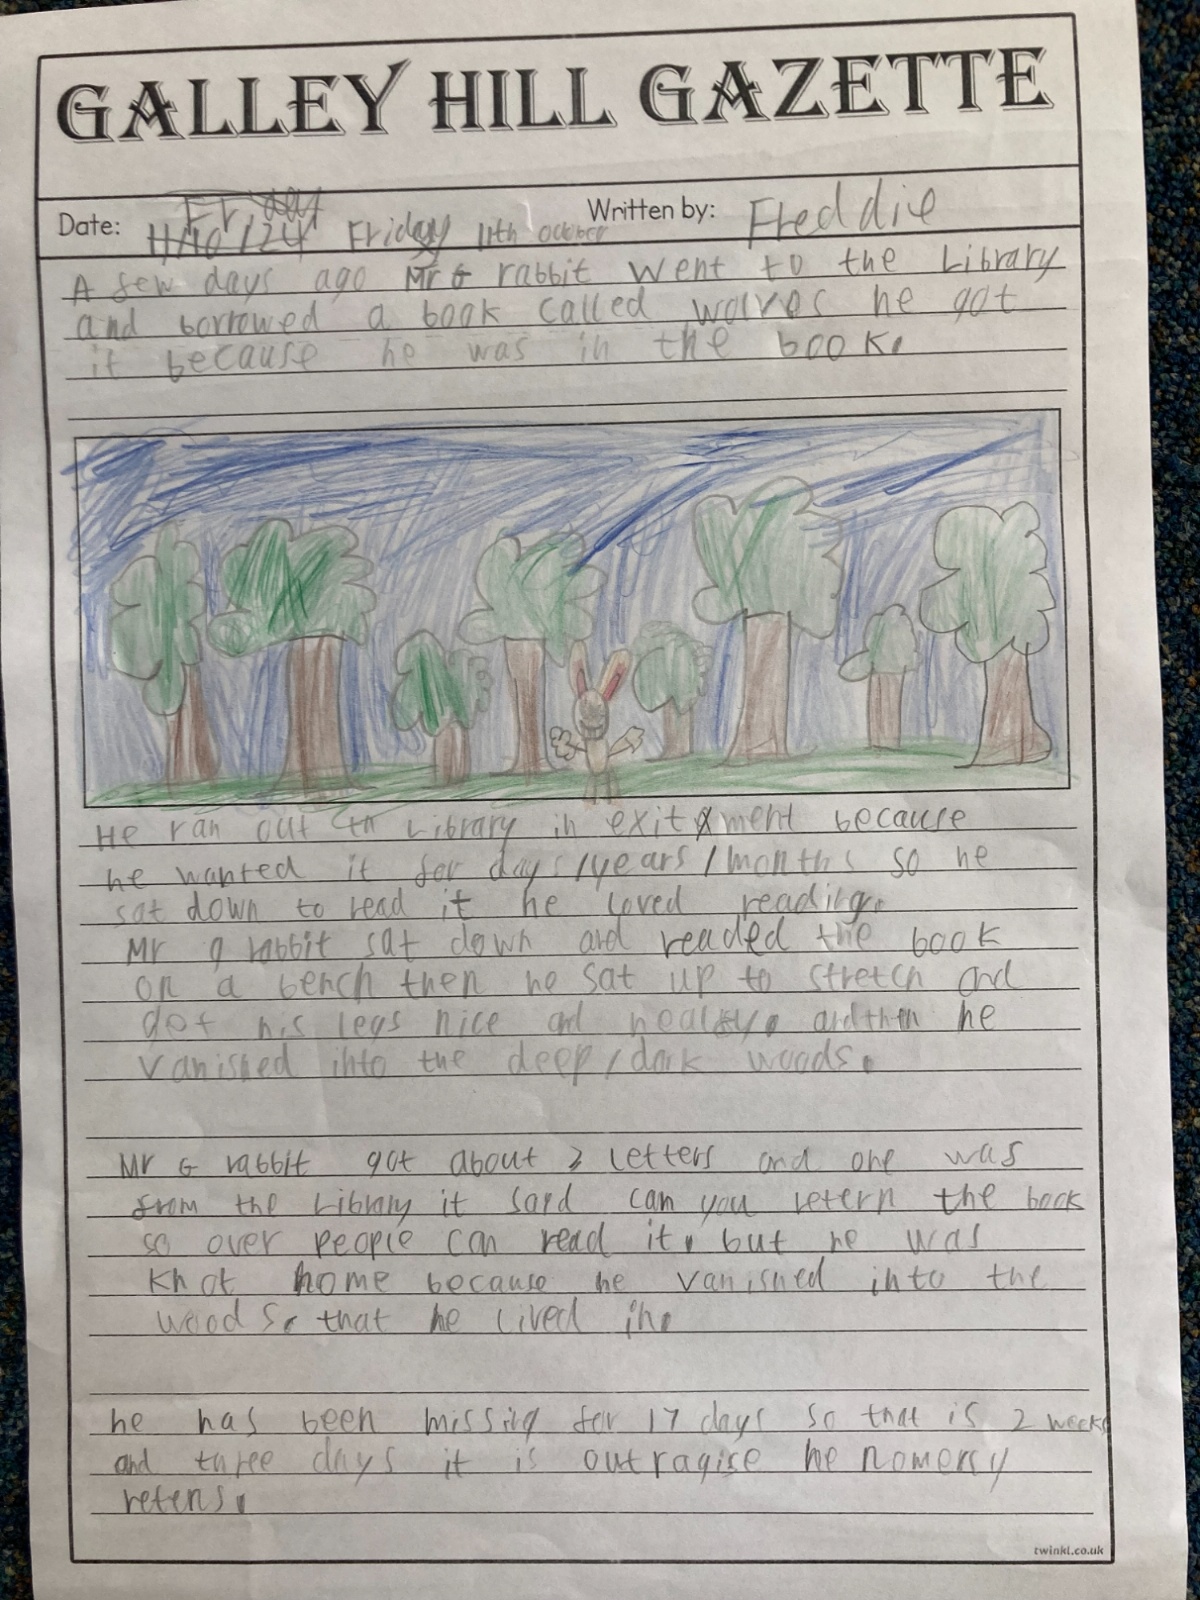 GALLEY HILL GAZETTE
Date: Friday 11th October Written by: Freddie
A few days ago Mr G rabbit went to the Library
and borrowed a book called wolves he got
it because he was in the book.
He ran out Library in exitment because
he wanted it for days/years/months so he
sat down to read it he loved reading.
Mr g rabbit sat down and readed the book
on a bench then he sat up to stretch and
get his legs nice and and then he
vanished into the deep/dark woods.
Mr G rabbit got about 2 Letters and one was
from the Library it said can you retern the book
so over people can read it, but he was
knot home because he vanished into the
woods. that he lived in.
he has been missing for 17 days so that is 2 weeks
and three days it is outragise he nomerly
retens.
twinkl.co.uk